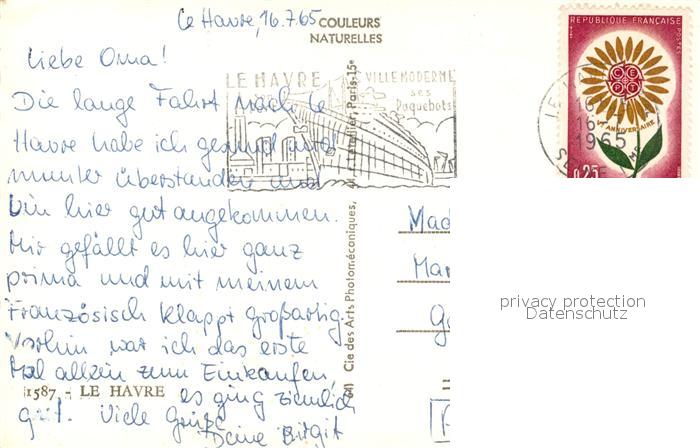 Le Havre, 16.7.65
COULEURS
NATURELLES
Liebe Oma!
Die lange Fahrt nach Le
Havre habe ich gesund und
munter überstanden und
bin hier gut angekommen.
Mir gefällt es hier ganz
prima und mit meinem
Französisch klappt großartig.
Vorhin war ich das erste
Mal allein zum Einkaufen,
es ging ziemlich
gut. Viele Grüße
Deine Birgit
1587 - LE HAVRE
LE HAVRE VILLE MODERNE
ses
Paquebots
Cie des Arts Photomécaniques, Paris-15e
REPUBLIQUE FRANÇAISE
POSTES
CEPT
Ve ANNIVERSAIRE
0,25
16-7
1965
Mad
Mar
privacy protection
Datenschutz